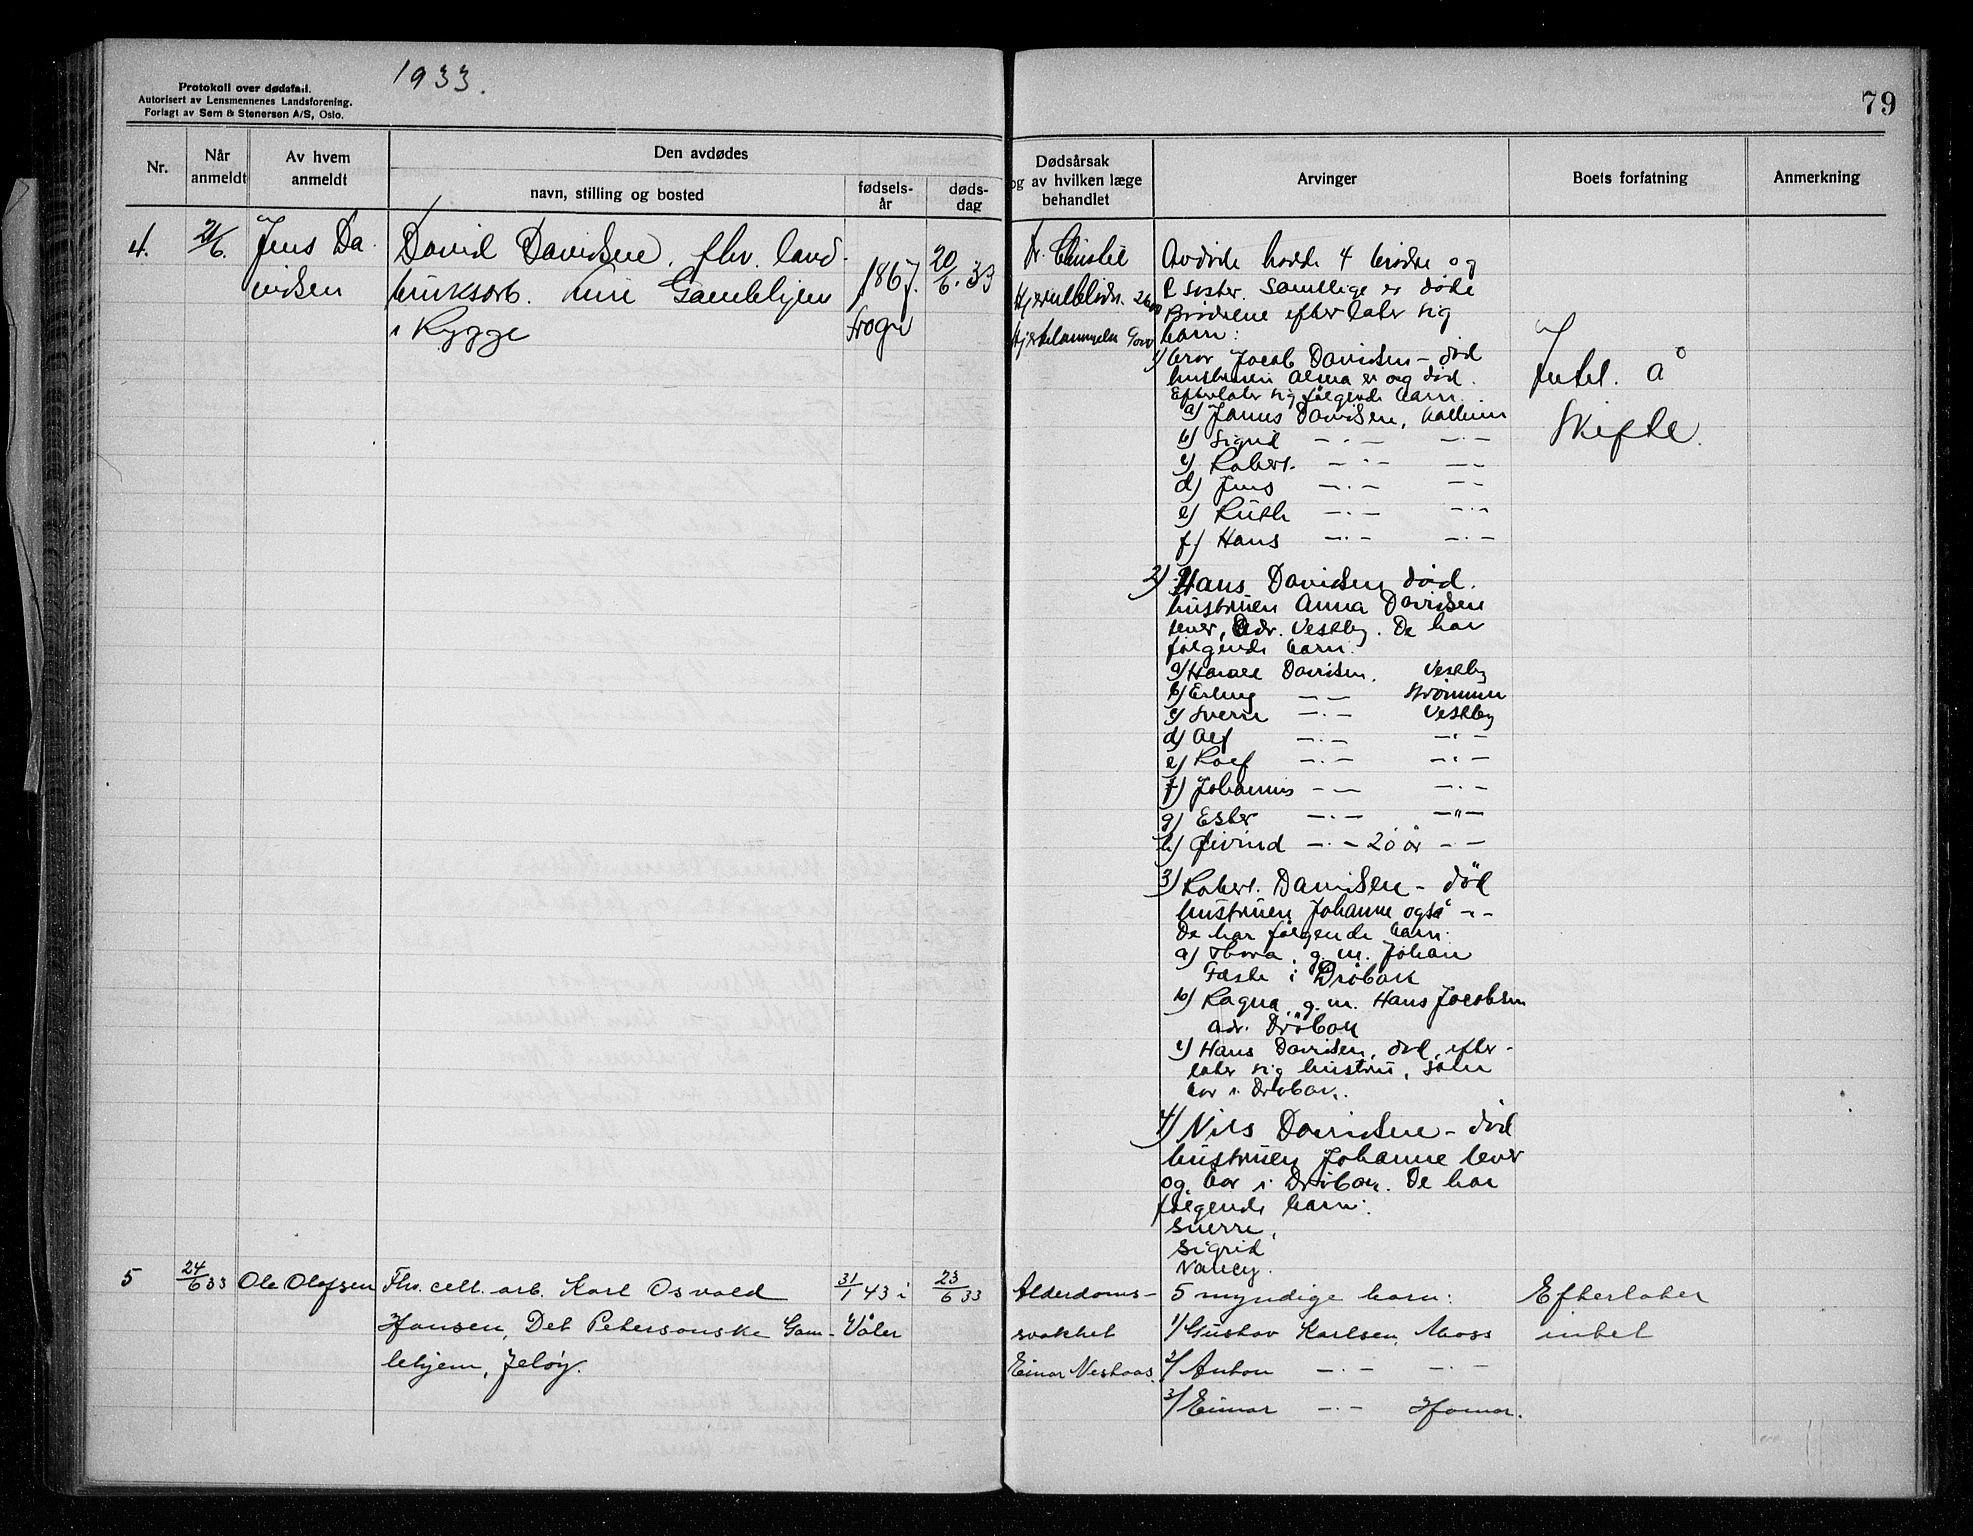 1933.
Protokoll over dødsfall.
Autorisert av Lensmennenes Landsforening.
Forlagt av Sem & Stenersen A/S, Oslo.
79
Nr.
Når anmeldt
Av hvem anmeldt
Den avdødes
navn, stilling og bosted
fødsels-år
døds-dag
Dødsårsak
og av hvilken læge
behandlet
Arvinger
Boets forfatning
Anmerkning
4.
21/6.
Jens Da-
vidsen
David Davidsen, fhv. land-
bruksarb.
Gamlehjem
i Rygge
1867.
Frogn
20/6.33
Dr.
Avdøde hadde 4 brødre og
1 søster. Samtlige er døde
Brødrene efterlater sig
barn:
1) bror Jacob Davidsen - død
hustruen Alma er og død.
Efterlater sig følgende barn
a) Jannes Davidsen,
b) Sigrid -.- -.-
c) Robert -.- -.-
d) Jens -.- -.-
e) Ruth -.- -.-
f) Hans -.- -.-
2) Hans Davidsen død.
hustruen Anna Davidsen
lever, adr. Vestby. De har
følgende barn:
a) Harald Davidsen, Vestby
b) Erling -.- Strømmen
c) Sverre -.- Vestby
d) Alf -.- -.-
e) Rolf -.- -.-
f) Johannes -.- -.-
g) Ester -.- -"-
h) Øivind -.- 20 år -.-
3) Robert Davidsen - død
hustruen Johanne også -.-
De har følgende barn:
a) Thora, g. m. Johan
Fæste i Drøbak
b) Ragna, g. m. Hans Jacobsen
adr. Drøbak
c) Hans Davidsen, død, efter-
later sig hustru, som
bor i Drøbak.
4) Nils Davidsen - død
hustruen Johanne lever
og bor i Drøbak. De har
følgende barn:
Sverre,
Sigrid
Nancy.
Intet å
skifte.
5
24/6 33
Ole Olafsen
Fhv. cell. arb. Karl Osvald
Hansen, Det Petersonske Gam-
lehjem, Jeløy.
31/1 43 i
Våler
23/6 33
Alderdoms-
svakhet
Einar Nestaas.
5 myndige barn:
1/ Gustav Karlsen, Moss
2/ Anton -.- -.-
3/ Einar -.- Hamar.
Efterlater
intet